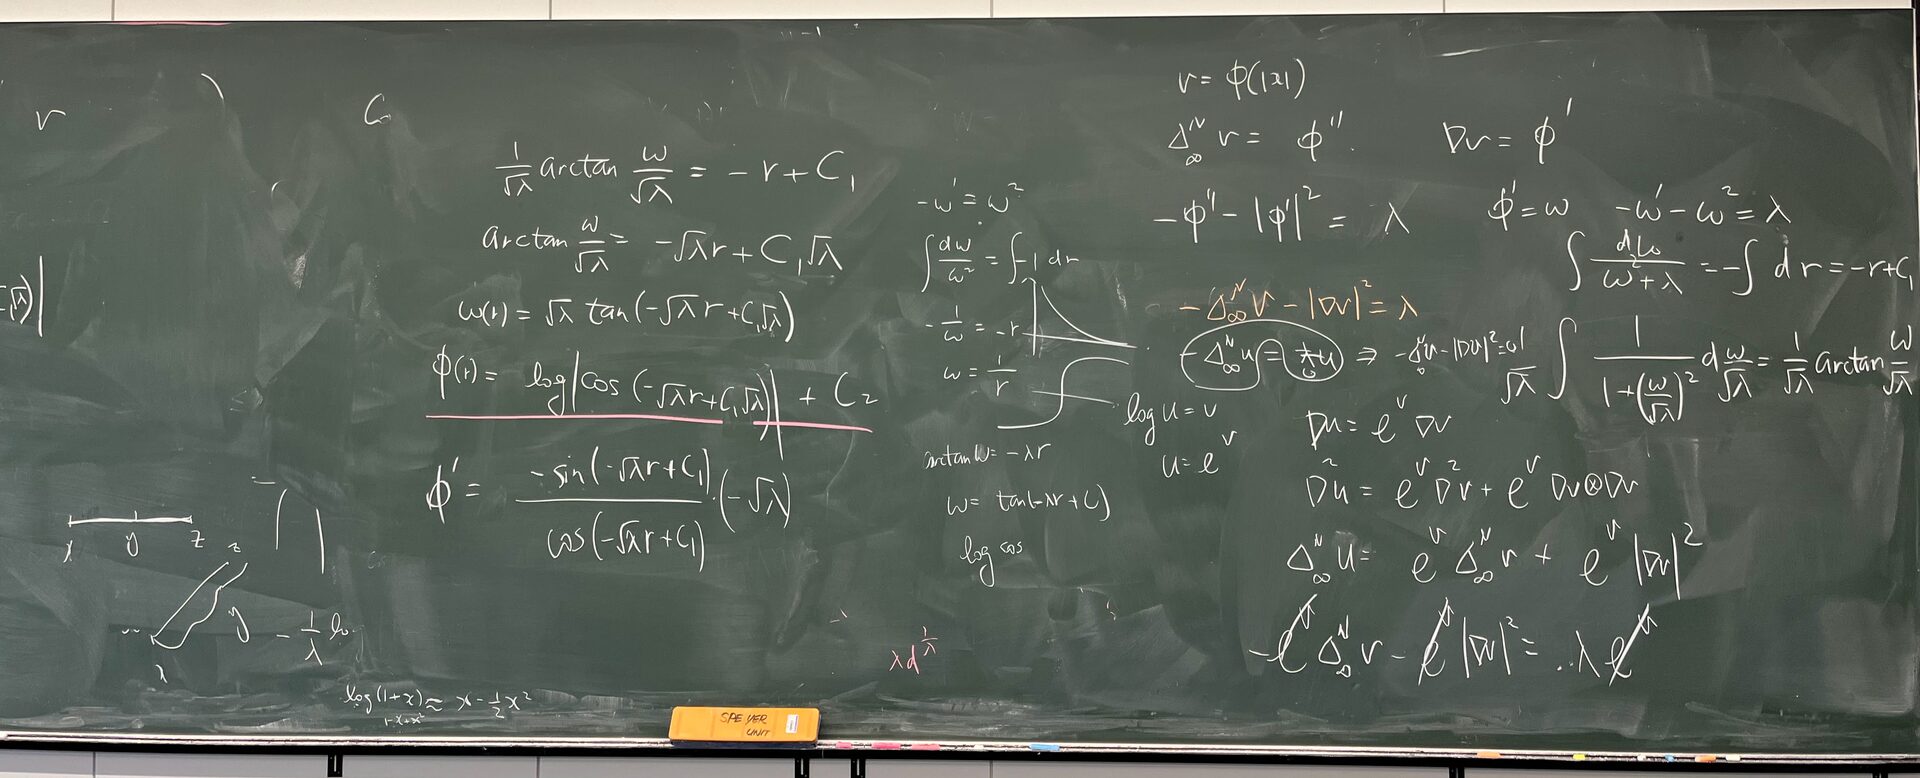 r
C
√λ)|
1/√λ arctan ω/√λ = -r + C₁
arctan ω/√λ = -√λr + C₁√λ
ω(r) = √λ tan(-√λr + C₁√λ)
φ(r) = log|cos(-√λr + C₁√λ)| + C₂
φ' = -sin(-√λr + C₁)/cos(-√λr + C₁) · (-√λ)
x y z
z
y
x
-1/λ lo
log(1+x) ≈ x - 1/2 x²
1-x+x²
-ω' = ω²
∫ dω/ω² = ∫ -1 dr
-1/ω = -r
ω = 1/r
arctan ω = -λr
ω = tan(-λr + C)
log cos
λd^(1/λ)
v = φ(|x|)
Δ^N_∞ v = φ''. Dv = φ'
-φ'' - |φ'|² = λ
φ' = ω -ω' - ω² = λ
∫ dω/(ω² + λ) = -∫ dr = -r + C₁
-Δ^N_∞ v - |Dv|² = λ
-Δ^N_∞ u = λu ⇒
1/√λ ∫ 1/(1+(ω/√λ)²) d ω/√λ = 1/√λ arctan ω/√λ
log u = v
u = e^v
Du = e^v Dv
D²u = e^v D²v + e^v Dv⊗Dv
Δ^N_∞ u = e^v Δ^N_∞ v + e^v |Dv|²
-e^v Δ^N_∞ v - e^v |Dv|² = λ e^v
SPEYER
UNIT